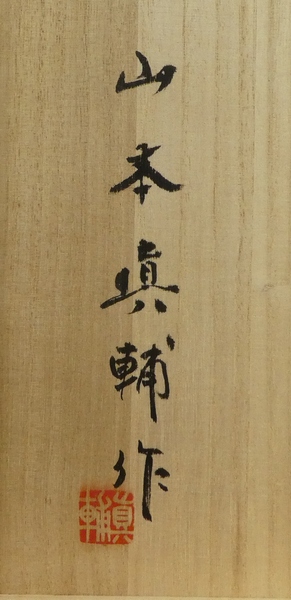 山本眞輔作
眞輔